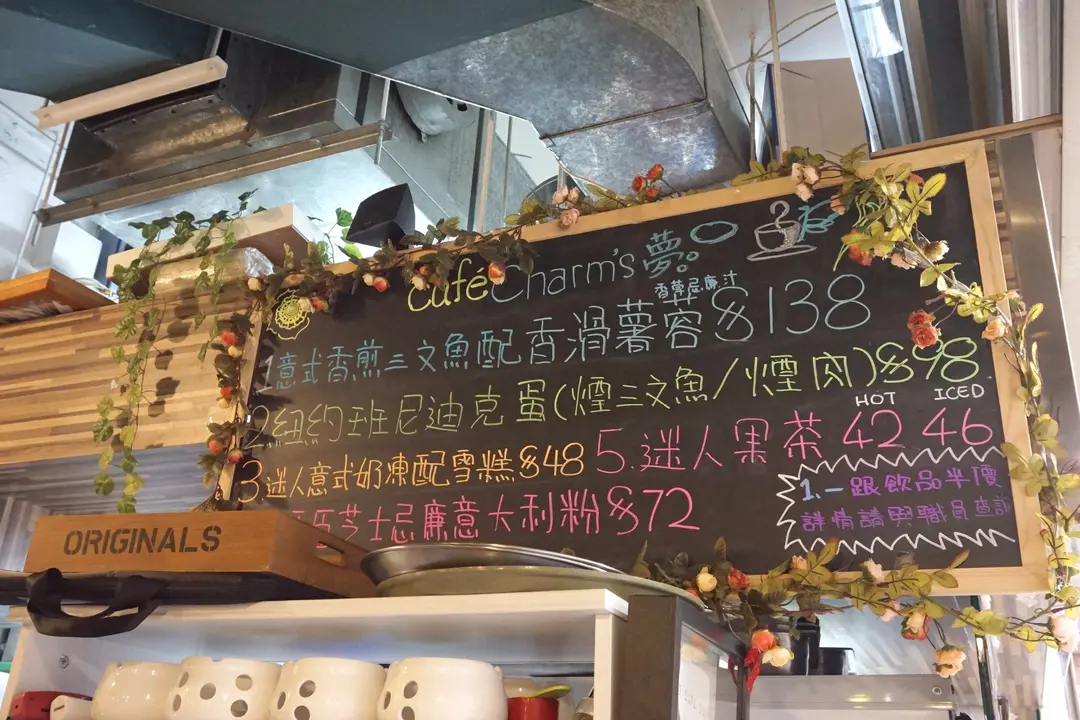 Café Charm's 夢。
香草忌廉汁
1意式香煎三文魚配香滑薯蓉$138
2.紐約班尼迪克蛋(煙三文魚/煙肉)$98
HOT ICED
3.迷人意式奶凍配雪糕$48
5.迷人果茶 42 46
芝士忌廉意大利粉$72
1.一跟飲品半價
詳情請與職員查詢
ORIGINALS